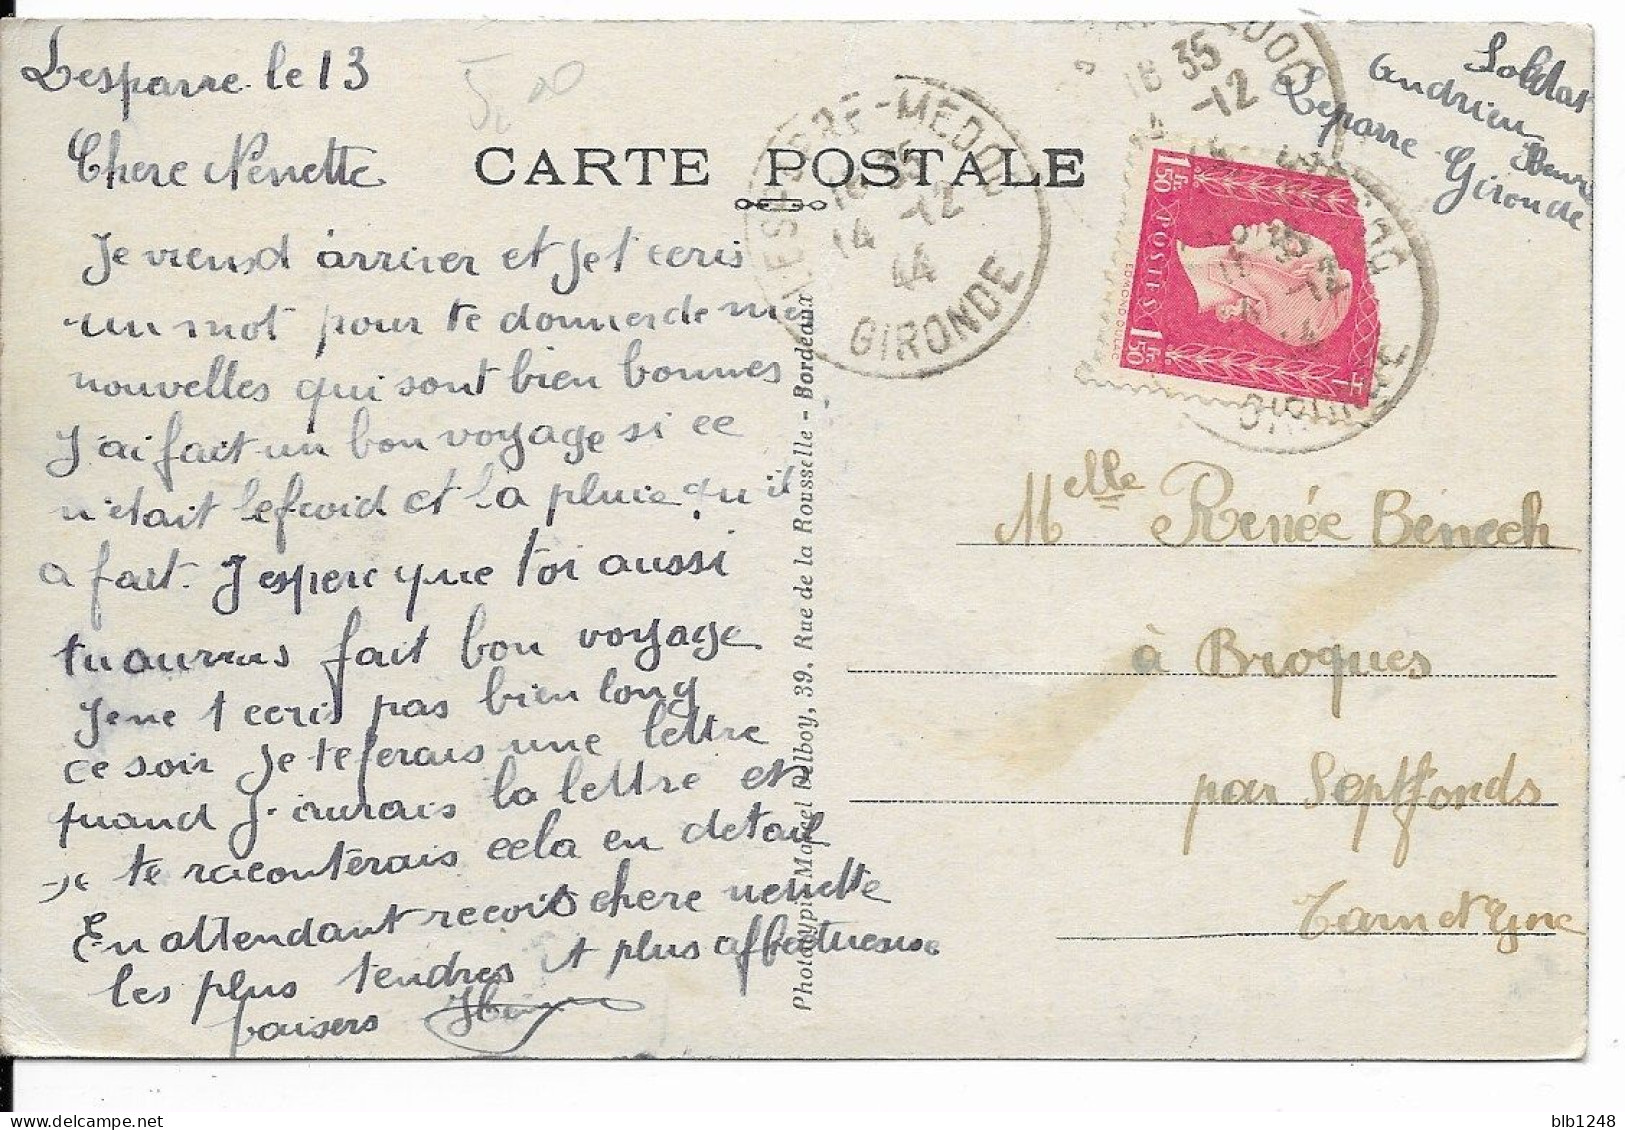 Lesparre le 13
5,00
Chere Nenette
Je viensd arriver et je t ecris
un mot pour te donner de mes
nouvelles qui sont bien bonnes
J'ai fait un bon voyage si ce
n'etait le froid et la pluie qu'il
a fait. J'espere que toi aussi
tu aurras fait bon voyage
Je ne t ecris pas bien long
ce soir je te ferais une lettre
quand j'aurais la lettre et
je te raconterais cela en detail
En attendant recois chere nenette
les plus tendres et plus affectueuse
baisers
CARTE POSTALE
LESPARRE-MEDOC
16 35
14 -12
44
GIRONDE
Phototypie Marcel Delboy, 39, Rue de la Rousselle - Bordeaux
16 35
-12
1Fr 50 POSTES 1Fr 50
EDMOND DULAC
GIRONDE
Soldat
Andrieu Henri
Leparre Gironde
Melle Renée Bénech
à Broques
par Septfonds
Tarn et Gne
blb1248